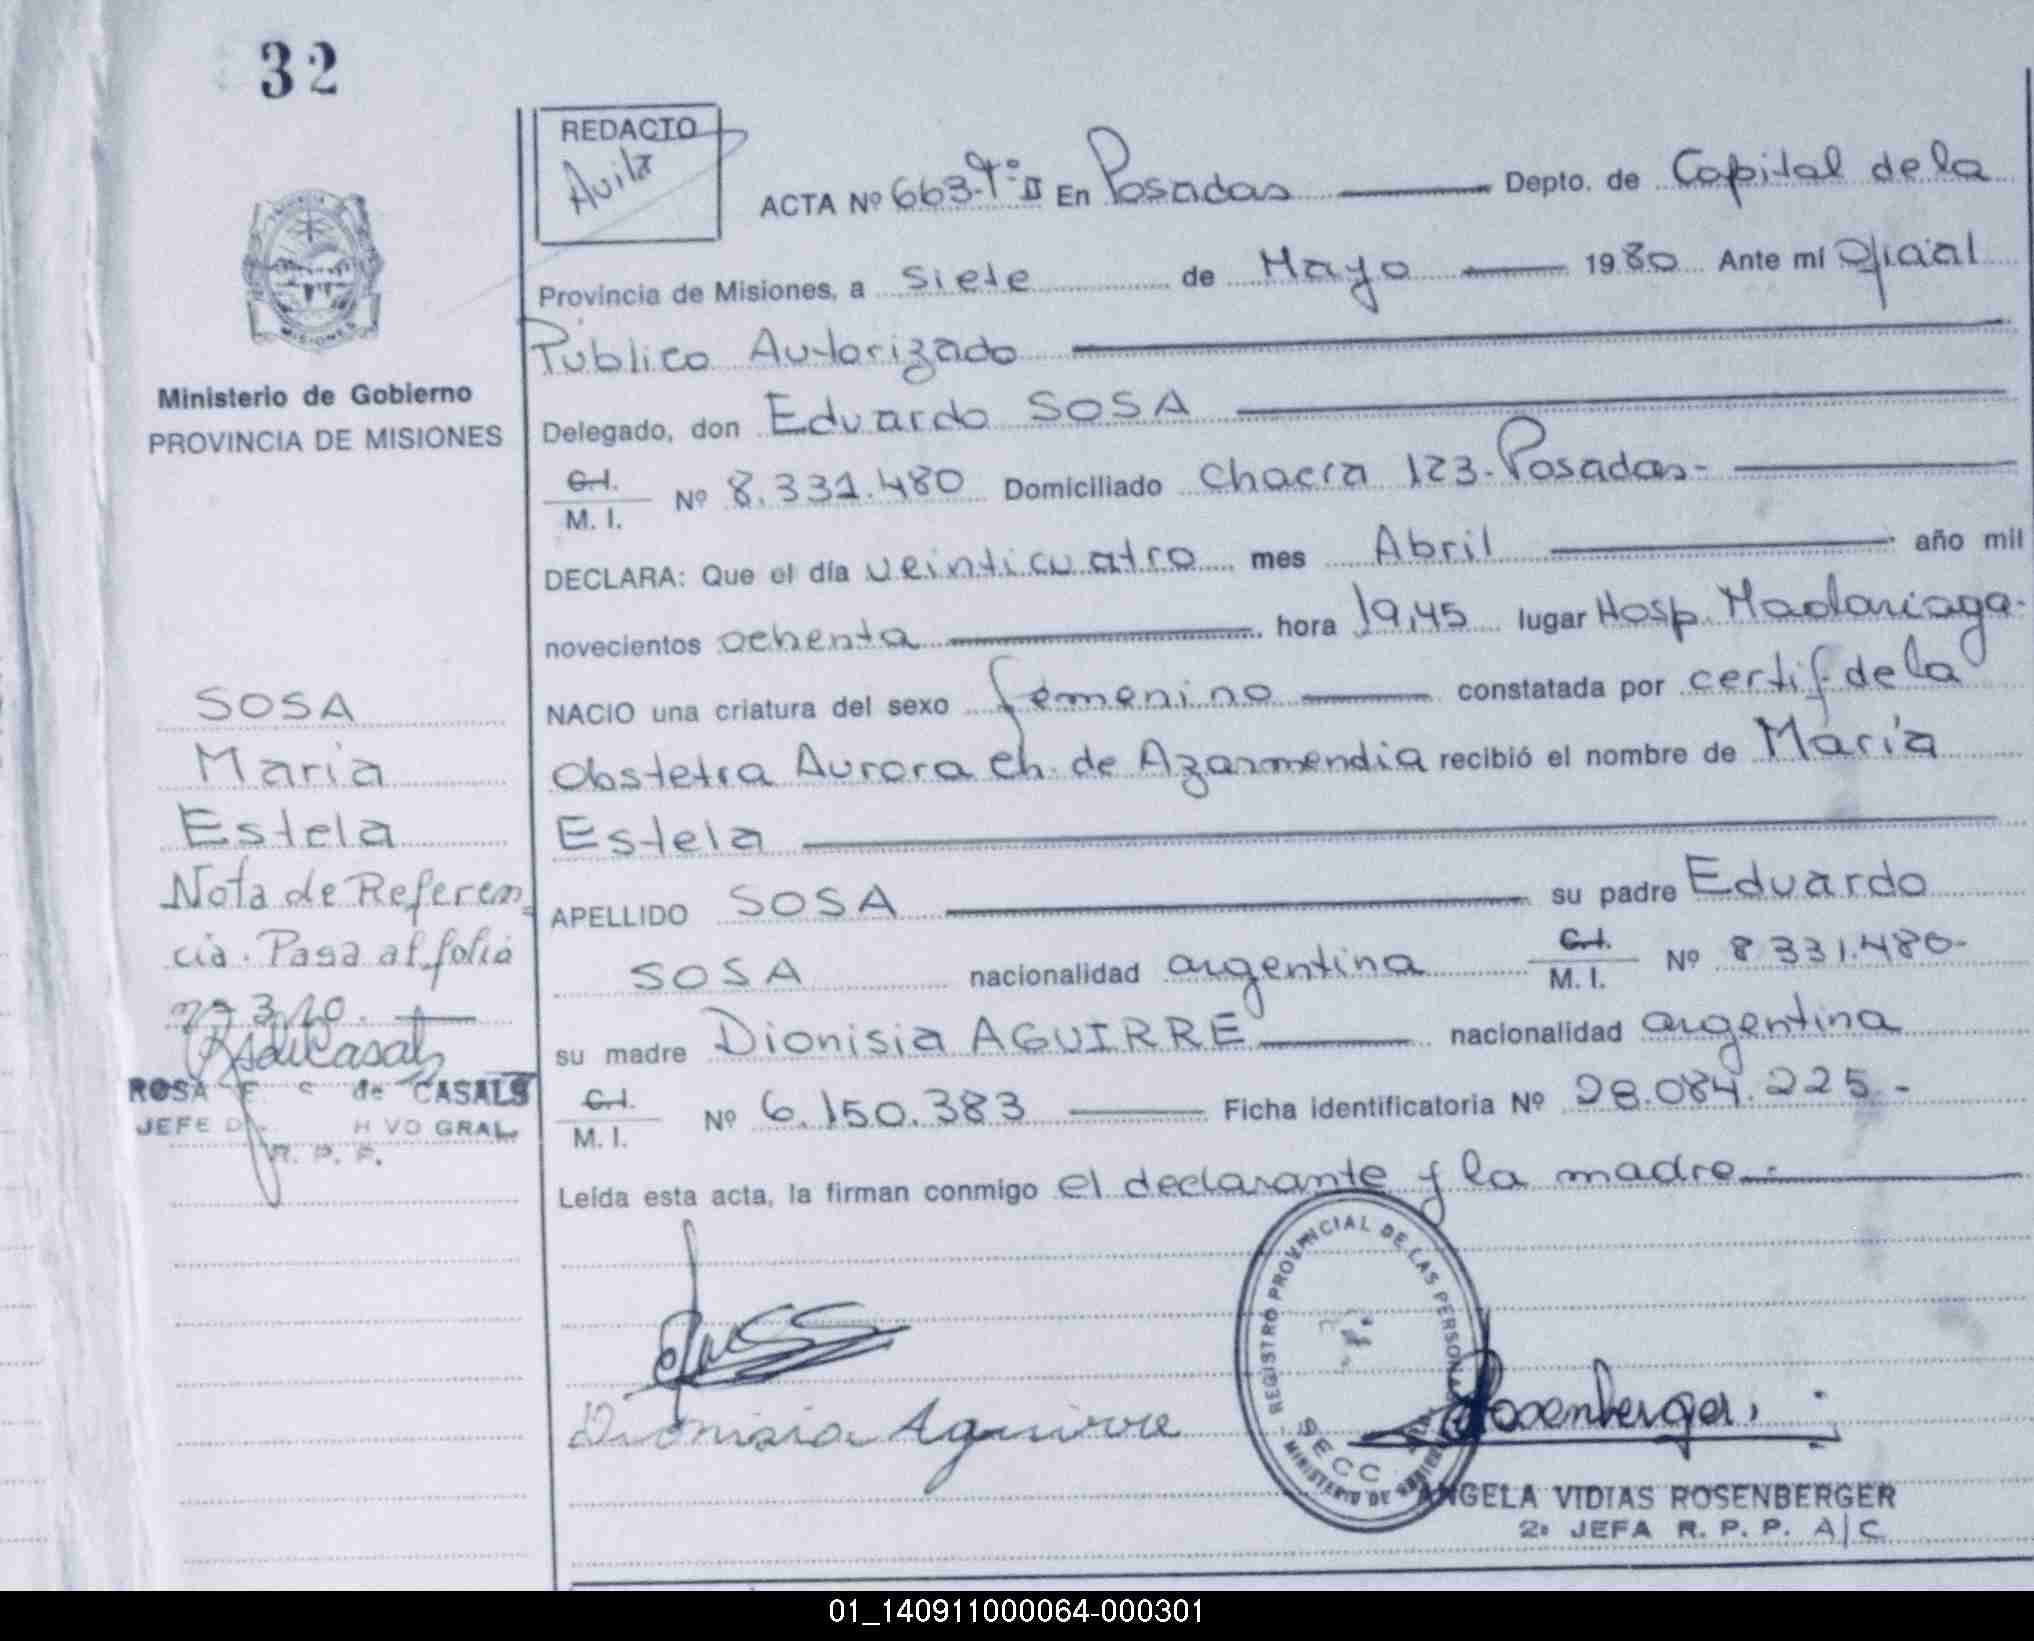 32
REDACTO
Avila
ACTA Nº 663-Tº II En Posadas Depto. de Capital de la
Provincia de Misiones, a siete de Mayo 1980 Ante mí Oficial
Público Autorizado
Delegado, don Eduardo SOSA
C.I.
M. I. Nº 8.331.480 Domiciliado Chacra 123-Posadas-
DECLARA: Que el día veinticuatro mes Abril año mil
novecientos ochenta hora 19,45 lugar Hosp. Madariaga-
NACIO una criatura del sexo femenino constatada por certif de la
Obstetra Aurora Ch. de Azarmendia recibió el nombre de María
Estela
APELLIDO SOSA su padre Eduardo
SOSA nacionalidad argentina C.I. M. I. Nº 8 331.480-
su madre Dionisia AGUIRRE nacionalidad argentina
C.I.
M. I. Nº 6.150.383 Ficha identificatoria Nº 28.084.225.-
Leída esta acta, la firman conmigo el declarante y la madre.-
Dionisia Aguirre
REGISTRO PROVINCIAL DE LAS PERSONAS
SECC.
MINISTERIO DE GOBIERNO
Rosenberger
ANGELA VIDIAS ROSENBERGER
2ª JEFA R. P. P. A/C
MISIONES
Ministerio de Gobierno
PROVINCIA DE MISIONES
SOSA
Maria
Estela
Nota de Referen
cia. Pasa al folio
nº 310.
ROSA E. C de CASALS
JEFE GRAL.
R. P. P.
01_140911000064-000301